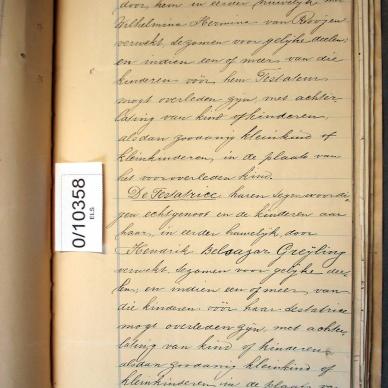 door hem in eerder huwelijk met
Wilhelmina Hermina van Rooijen
verwekt, te zamen voor gelyke deelen;
en indien een of meer van die
kinderen vóór hem Testateur
mogt overleden zyn, met achter-
lating van kind of kinderen,
alsdan zoodanig kleinkind of
kleinkinderen, in de plaats van
het vooroverleden kind.
De Testatrice haren tegenwoordi-
gen echtgenoot en de kinderen aan
haar, in eerder huwelijk, door
Hendrik Belsazar Greyling
verwekt, te zamen voor gelyke dee-
len; en indien een of meer, van
die kinderen vóór haar testatrice
mogt overleden zyn, met achter-
lating van kind of kinderen,
alsdan zoodanig kleinkind of
kleinkinderen in de plaats van
0/10358